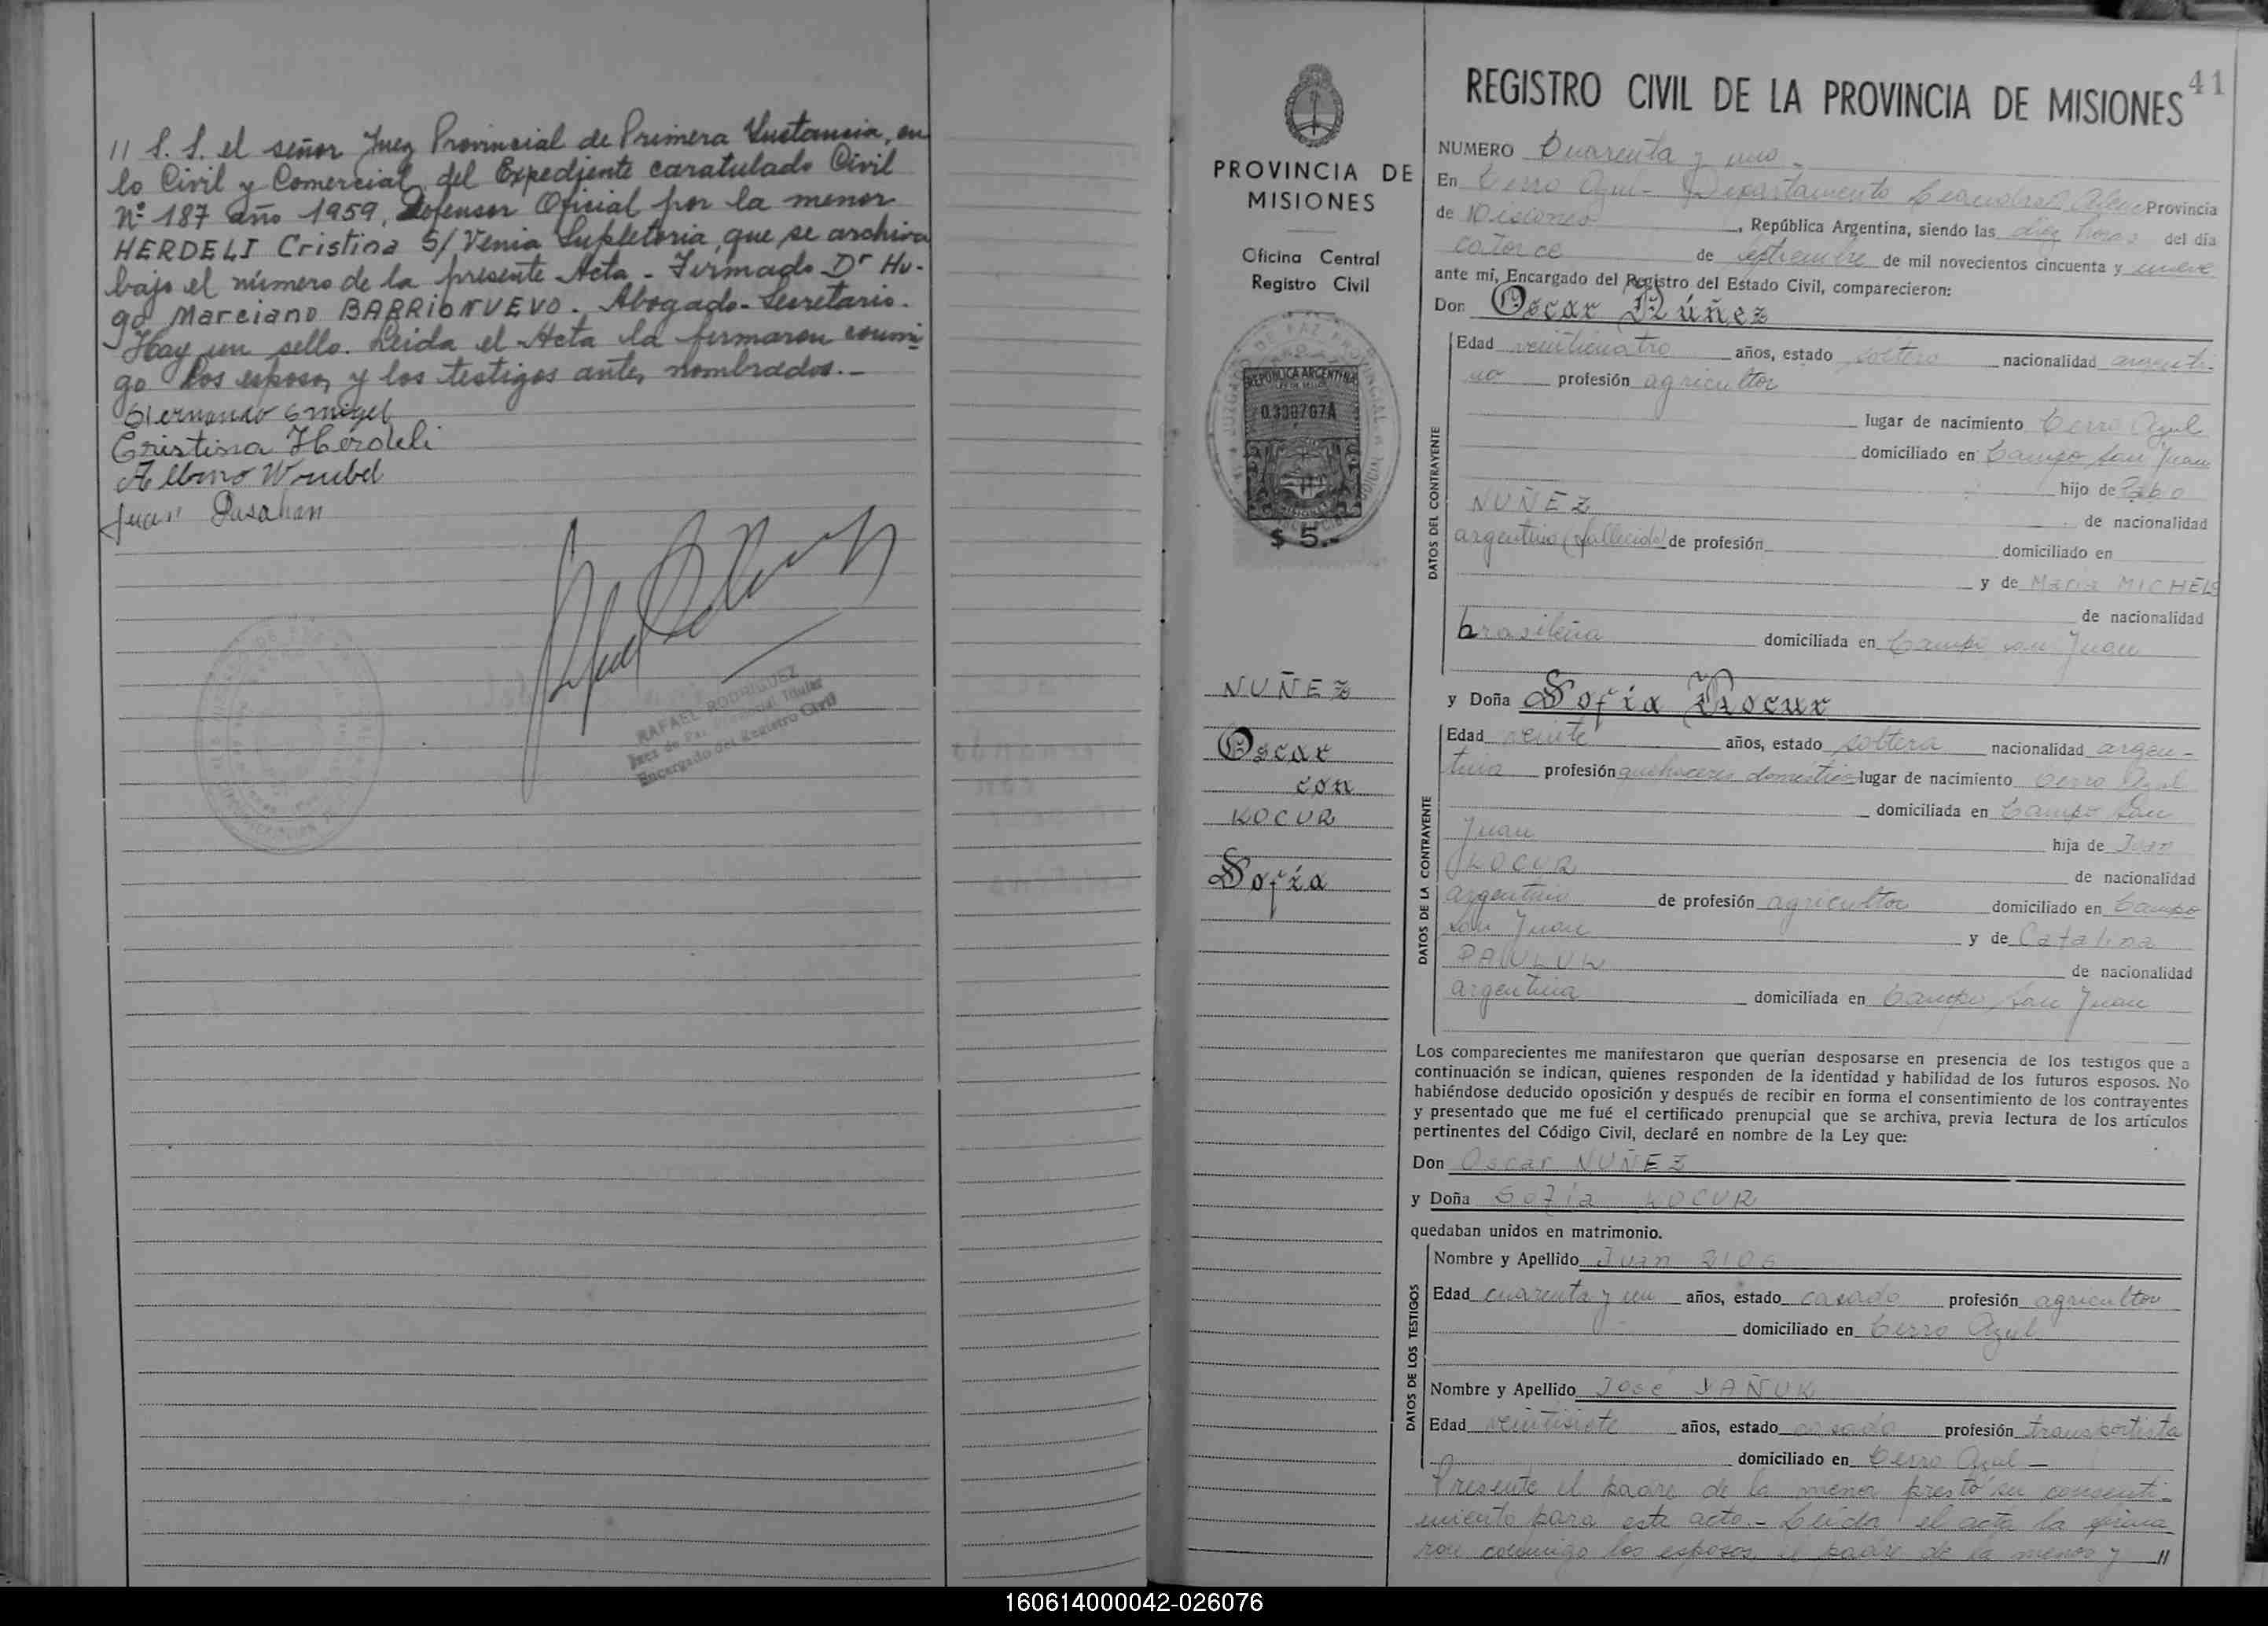 // S. S. el señor Juez Provincial de Primera Instancia, en
lo Civil y Comercial, del Expediente caratulado Civil
Nº 187 año 1959, Defensor Oficial por la menor
HERDELI Cristina S/ Venia Supletoria, que se archiva
bajo el número de la presente Acta - Firmado Dr Hu-
go Marciano BARRIONUEVO. Abogado-Secretario.
Hay un sello. Leida el Acta la firmaron conmi
go los esposos y los testigos antes nombrados.-
Cristina Herdeli
Albino Wrubel
Juan
RAFAEL RODRIGUEZ
Juez de Paz Provincial Titular
Encargado del Registro Civil
41
PROVINCIA DE
MISIONES
Oficina Central
Registro Civil
REPUBLICA ARGENTINA
0.330707A
$ 5.-
NUÑEZ
Oscar
con
KOCUR
Sofía
REGISTRO CIVIL DE LA PROVINCIA DE MISIONES
NUMERO Cuarenta y uno -
En Cerro Azul - Departamento Leandro N. Alem Provincia
de Misiones, República Argentina, siendo las diez horas del día
catorce de septiembre de mil novecientos cincuenta y nueve
ante mí, Encargado del Registro del Estado Civil, comparecieron:
Don Oscar Núñez
DATOS DEL CONTRAYENTE
Edad veinticuatro años, estado soltero nacionalidad argenti-
no profesión agricultor
lugar de nacimiento Cerro Azul
domiciliado en Campo San Juan
hijo de
NUÑEZ
de nacionalidad
argentino (fallecido) de profesión domiciliado en
y de Maria MICHELS
de nacionalidad
brasileña domiciliada en Campo San Juan
y Doña Sofía Kocur
DATOS DE LA CONTRAYENTE
Edad veinte años, estado soltera nacionalidad argen-
tina profesión quehaceres domésticos lugar de nacimiento Cerro Azul
domiciliada en Campo San
Juan
hija de Juan
KOCUR
de nacionalidad
argentino de profesión agricultor domiciliado en Campo
San Juan
y de Catalina
PAWLUK
de nacionalidad
argentina domiciliada en Campo San Juan
Los comparecientes me manifestaron que querían desposarse en presencia de los testigos que a
continuación se indican, quienes responden de la identidad y habilidad de los futuros esposos. No
habiéndose deducido oposición y después de recibir en forma el consentimiento de los contrayentes
y presentado que me fué el certificado prenupcial que se archiva, previa lectura de los artículos
pertinentes del Código Civil, declaré en nombre de la Ley que:
Don Oscar NUÑEZ
y Doña Sofía KOCUR
quedaban unidos en matrimonio.
DATOS DE LOS TESTIGOS
Nombre y Apellido Juan
Edad cuarenta y un años, estado casado profesión agricultor
domiciliado en Cerro Azul
Nombre y Apellido José
Edad veintisiete años, estado casado profesión transportista
domiciliado en Cerro Azul -
Presente el padre de la menor prestó su consenti-
miento para este acto.- Leída el acta la firma
ron conmigo los esposos, el padre de la menor y //
160614000042-026076